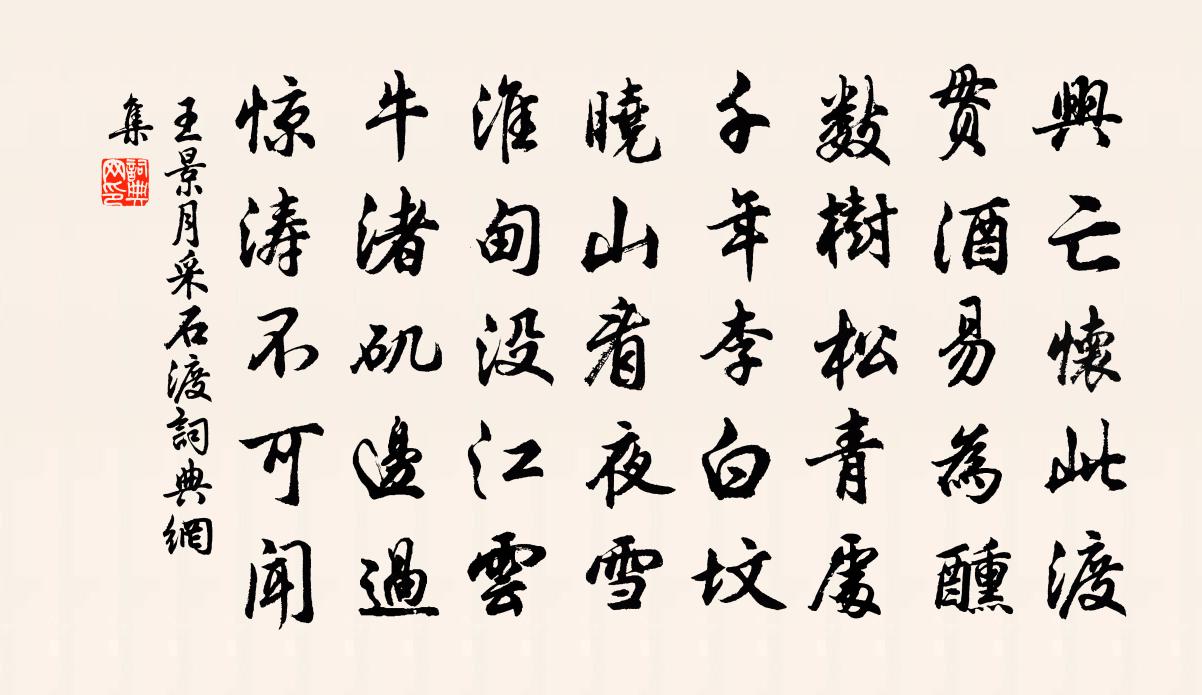 興亡懷此渡
貫酒易為醺
數樹松青處
千年李白坟
曉山看夜雪
淮甸没江雲
牛渚矶邊過
惊涛不可闻
王景月采石渡詞典網
集
詞典
网印